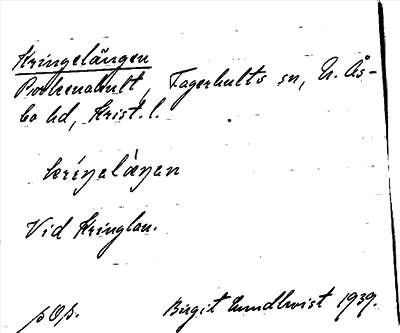 Kringelängen
Porkenahult, Fagerhults sn, N. Ås-
bo hd, Krist. l.
kriŋelàŋen
Vid Kringlan.
sOs.
Birgit Lundkvist 1939.